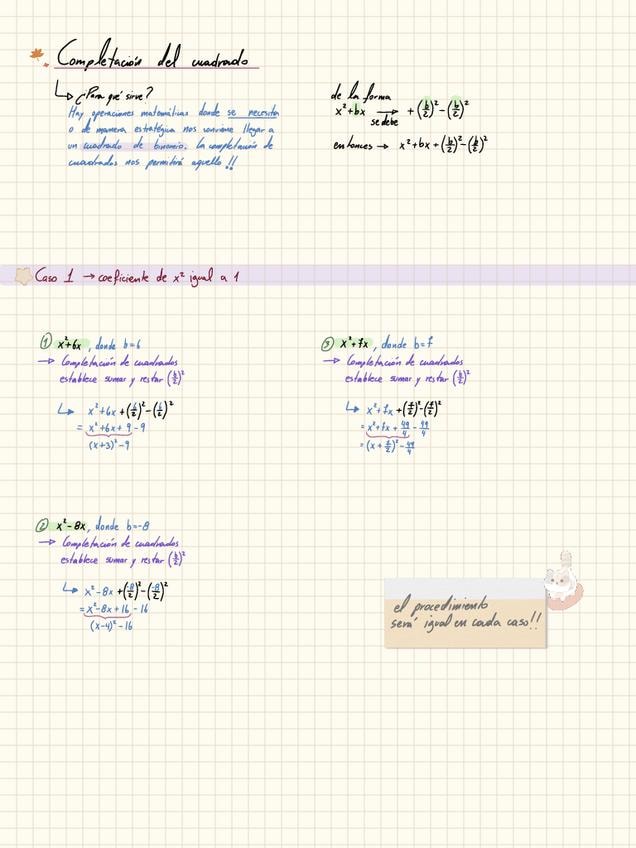 Completación del cuadrado
↳ ¿Para qué sirve?
Hay operaciones matemáticas donde se necesita
o de manera estratégica nos conviene llegar a
un cuadrado de binomio. La completación de
cuadrados nos permitirá aquello!!
de la forma
x²+bx → +(b/2)²-(b/2)²
se debe
entonces → x²+bx+(b/2)²-(b/2)²
Caso 1 → coeficiente de x² igual a 1
① x²+6x, donde b=6
→ Completación de cuadrados
establece sumar y restar (b/2)²
↳ x²+6x+(6/2)²-(6/2)²
= x²+6x+9-9
(x+3)²-9
② x²-8x, donde b=-8
→ Completación de cuadrados
establece sumar y restar (b/2)²
↳ x²-8x+(-8/2)²-(-8/2)²
= x²-8x+16-16
(x-4)²-16
③ x²+7x, donde b=7
→ Completación de cuadrados
establece sumar y restar (b/2)²
↳ x²+7x+(7/2)²-(7/2)²
= x²+7x+49/4-49/4
= (x+7/2)²-49/4
el procedimiento
será igual en cada caso!!